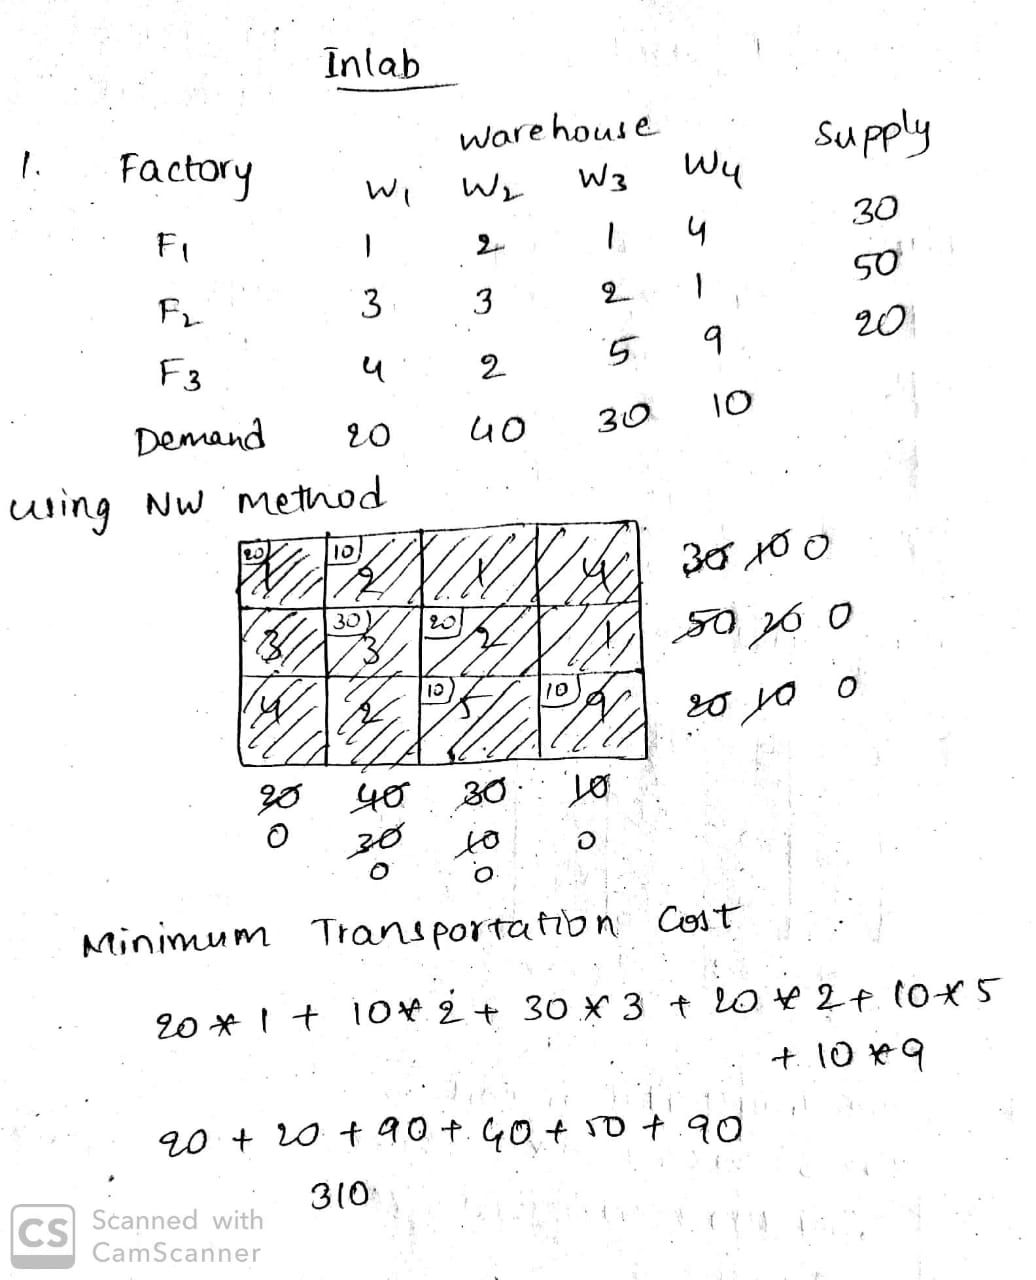 Inlab
Warehouse Supply
1. Factory W1 W2 W3 W4
F1 1 2 1 4 30
F2 3 3 2 1 50
F3 4 2 5 9 20
Demand 20 40 30 10
using NW method
20 1 10 2 1 4 30 10 0
3 30 3 20 2 1 50 20 0
4 2 10 5 10 9 20 10 0
20 40 30 10
0 30 10 0
0 0
Minimum Transportation Cost
20 * 1 + 10 * 2 + 30 * 3 + 20 * 2 + 10 * 5
+ 10 * 9
20 + 20 + 90 + 40 + 50 + 90
310
CS Scanned with
CamScanner